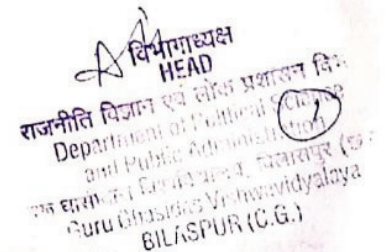 विभागाध्यक्ष
HEAD
राजनीति विज्ञान एवं लोक प्रशासन
Department of Political Science
and Public Administration
1
बिलासपुर
Guru Ghasidas Vishwavidyalaya
BILASPUR (C.G.)